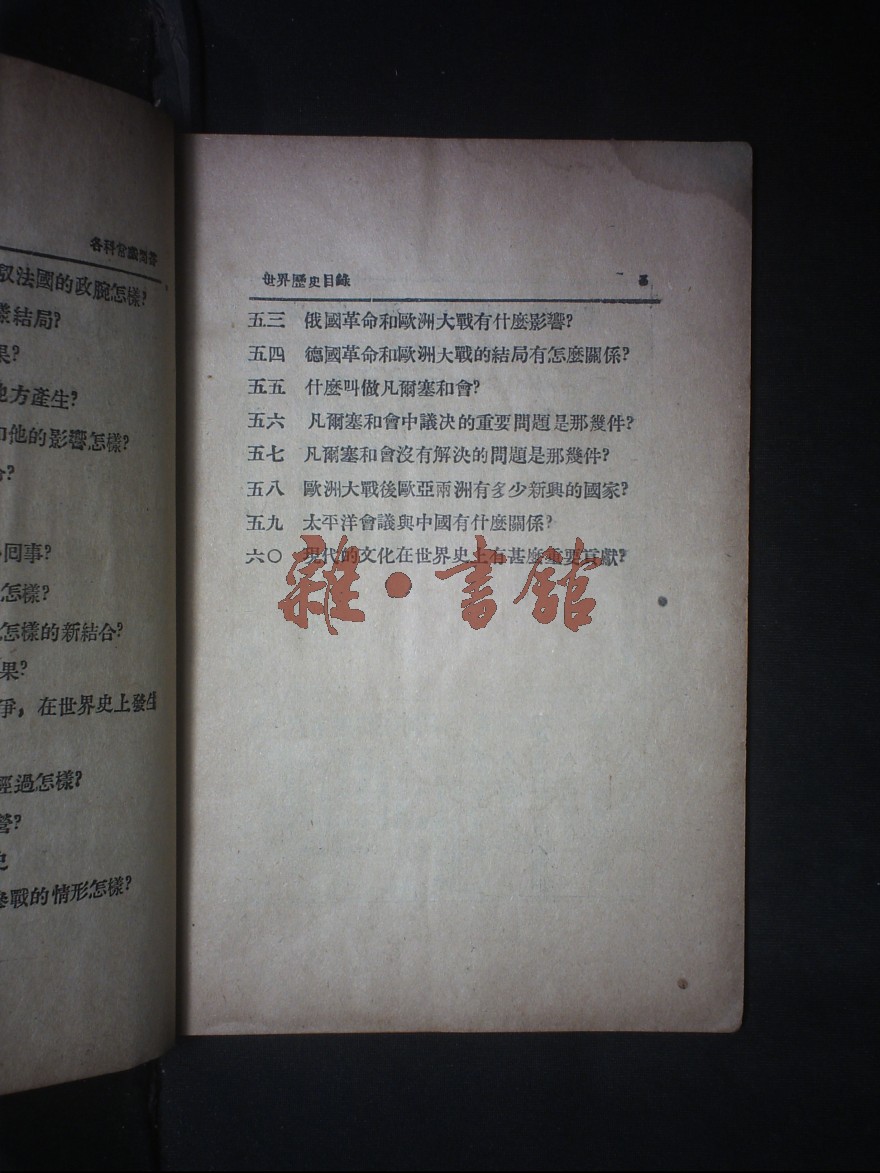 各科常識問答
法國的政腕怎樣?
結局?
果?
地方產生?
和他的影響怎樣?
?
回事?
怎樣?
怎樣的新結合?
果?
爭，在世界史上發生
經過怎樣?
營?
史
參戰的情形怎樣?
世界歷史目錄 三
五三 俄國革命和歐洲大戰有什麼影響?
五四 德國革命和歐洲大戰的結局有怎麼關係?
五五 什麼叫做凡爾塞和會?
五六 凡爾塞和會中議決的重要問題是那幾件?
五七 凡爾塞和會沒有解決的問題是那幾件?
五八 歐洲大戰後歐亞兩洲有多少新興的國家?
五九 太平洋會議與中國有什麼關係?
六〇 現代的文化在世界史上有甚麼重要貢獻?
雜·書館